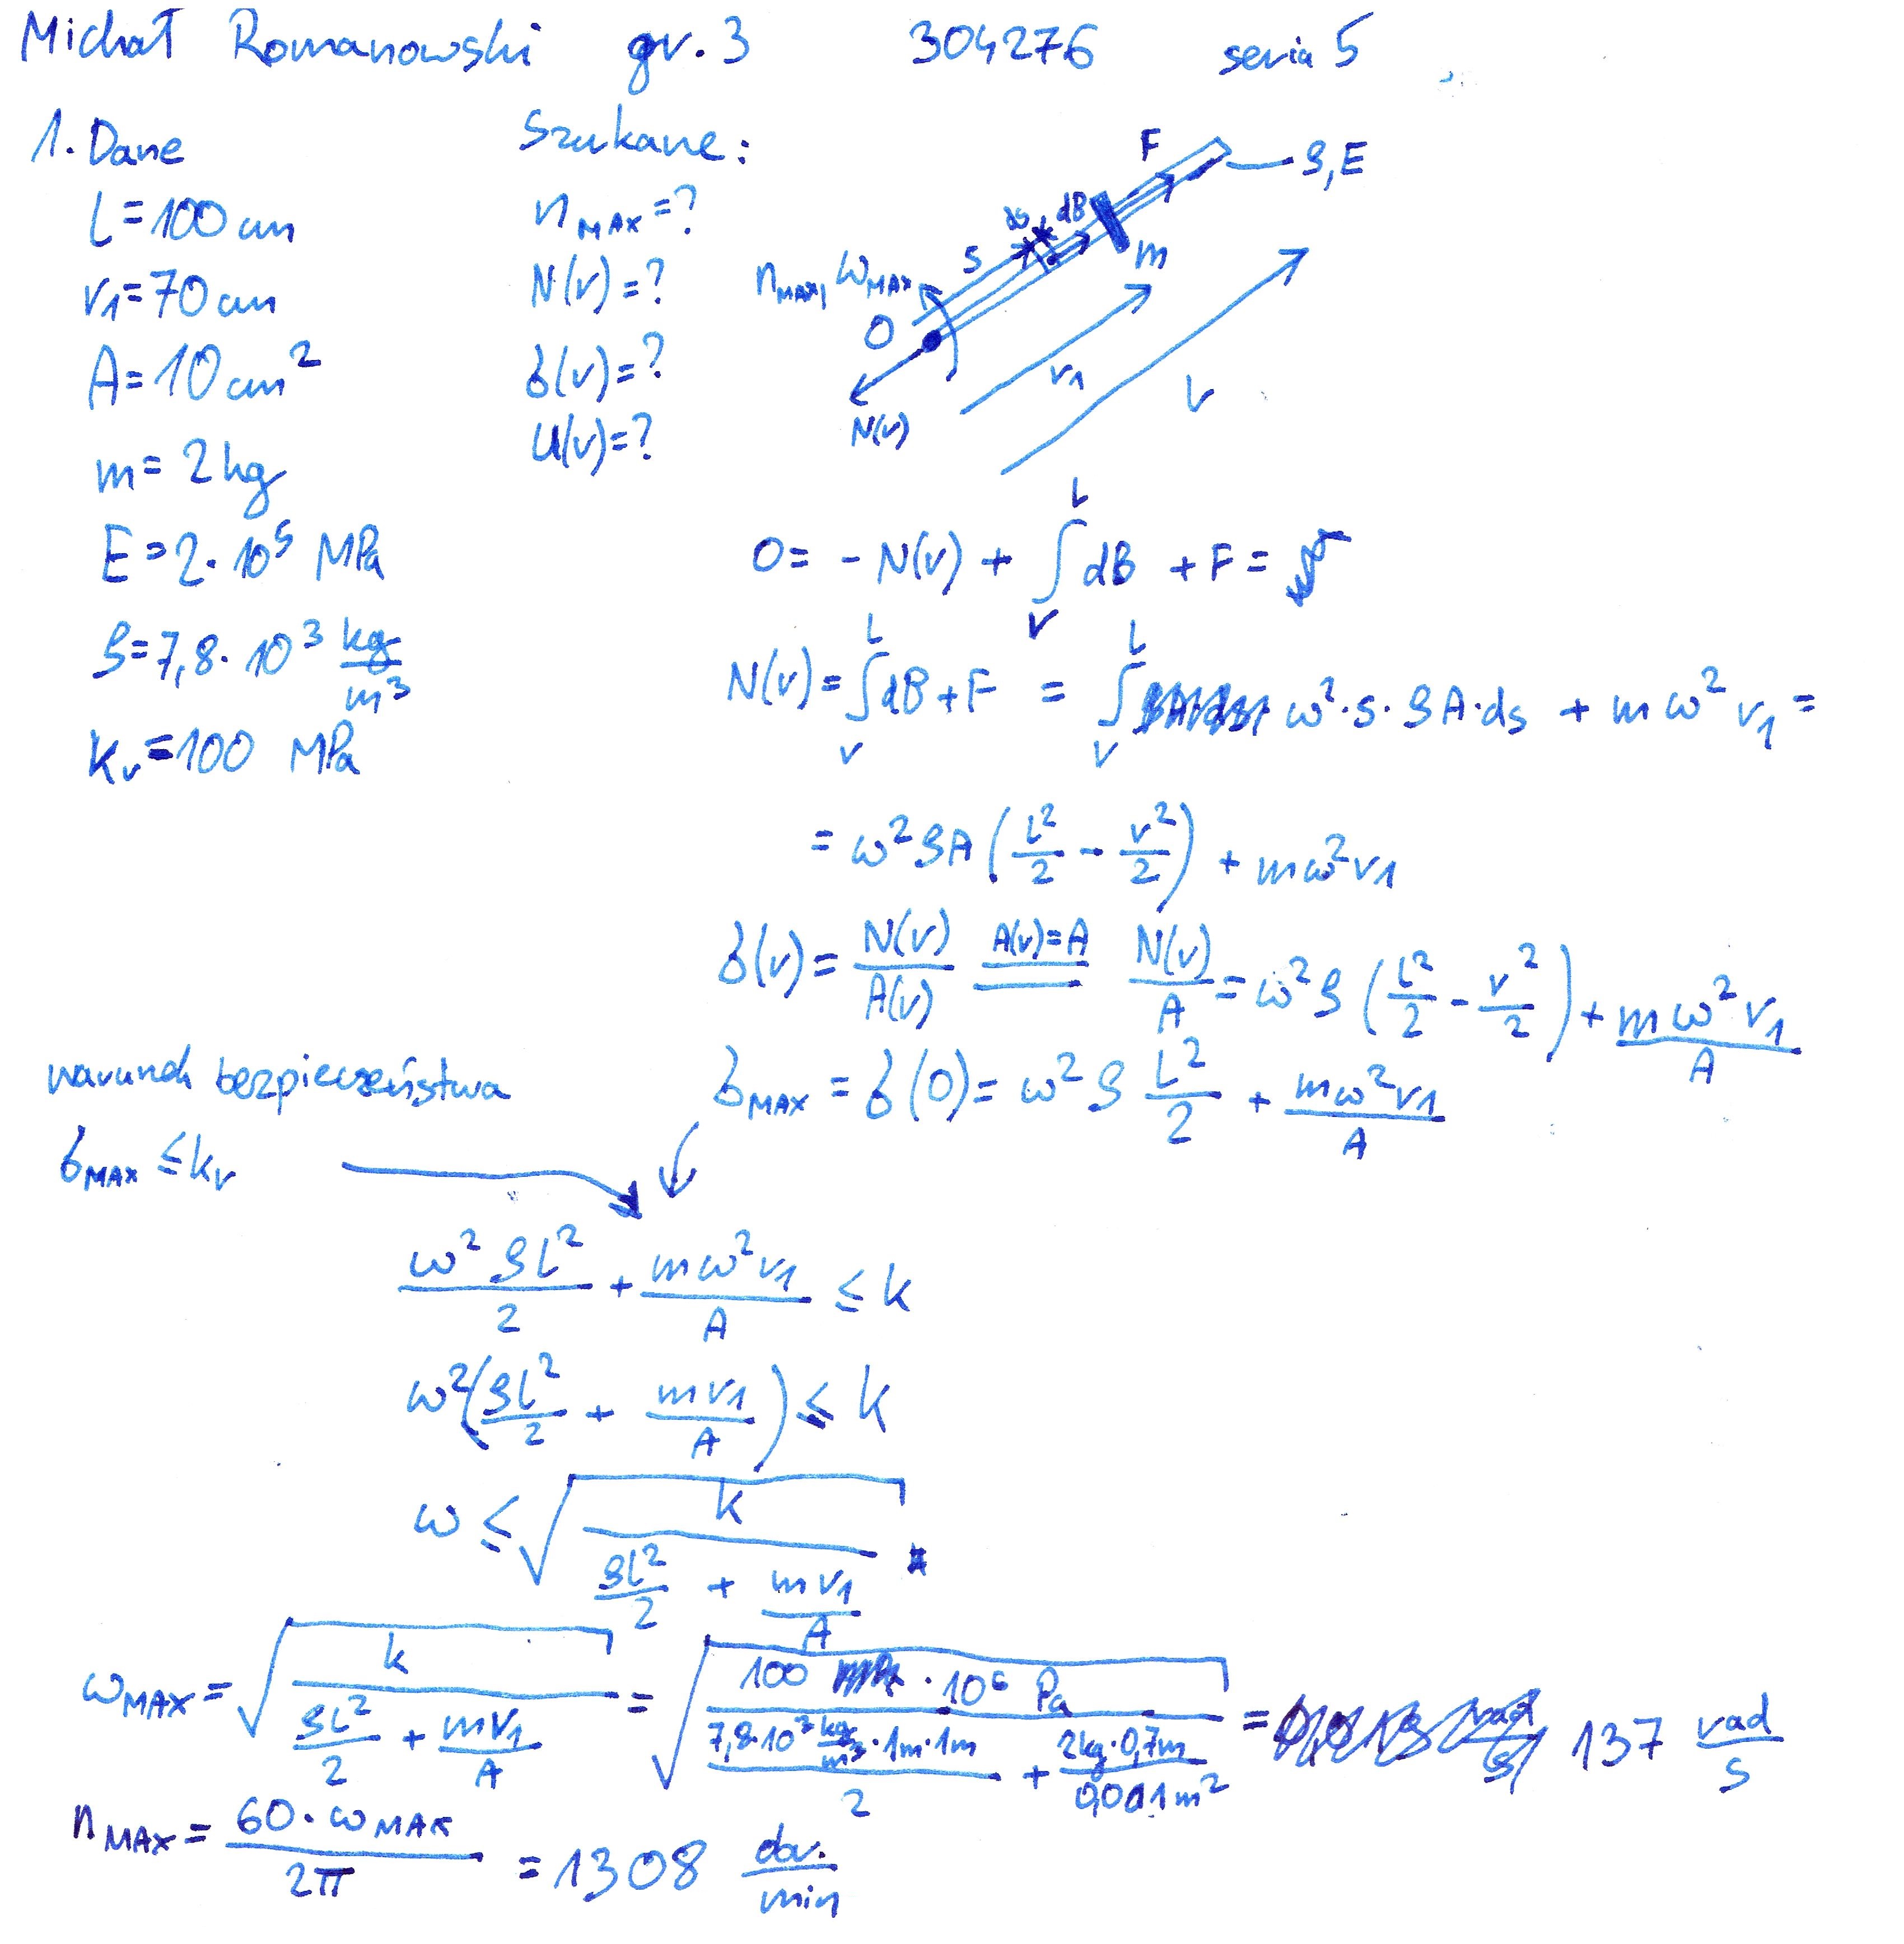 Michał Romanowski gr. 3 304276 seria 5
1. Dane
L = 100 cm
r1 = 70 cm
A = 10 cm²
m = 2 kg
E = 2 · 10⁵ MPa
ρ = 7,8 · 10³ kg/m³
kr = 100 MPa
Szukane:
nMAX = ?
N(r) = ?
δ(r) = ?
U(r) = ?
F
ρ, E
ds dB
s
m
nMAX, ωMAX
O
r1
L
N(r)
0 = - N(r) + ∫_r^L dB + F =
N(r) = ∫_r^L dB + F = ∫_r^L ω² · s · ρA · ds + mω² r1 =
= ω² ρA (L²/2 - r²/2) + mω² r1
δ(r) = N(r)/A(r) A(r)=A N(r)/A = ω² ρ (L²/2 - r²/2) + mω² r1/A
δMAX = δ(0) = ω² ρ L²/2 + mω² r1/A
warunek bezpieczeństwa
δMAX ≤ kr
ω² ρL²/2 + mω² r1/A ≤ k
ω² (ρL²/2 + m r1/A) ≤ k
ω ≤ √(k/(ρL²/2 + m r1/A))
ωMAX = √(k/(ρL²/2 + m r1/A)) = √(100 · 10⁶ Pa/(7,8 · 10³ kg/m³ · 1m · 1m/2 + 2kg · 0,7m/0,001m²)) = 137 rad/s
nMAX = 60 · ωMAX/2π = 1308 obr./min